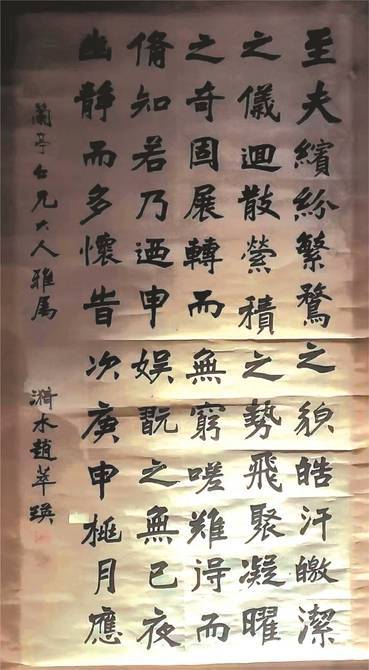 至夫繽紛繁騖之貌皓汗皦潔
之儀迴散縈積之勢飛聚凝曜
之奇固展轉而無窮嗟難得而
偹知若乃迺申娛翫之無已夜
幽靜而多懷旹次庚申桃月應
蘭亭仁兄大人雅属
水趙萃瑛